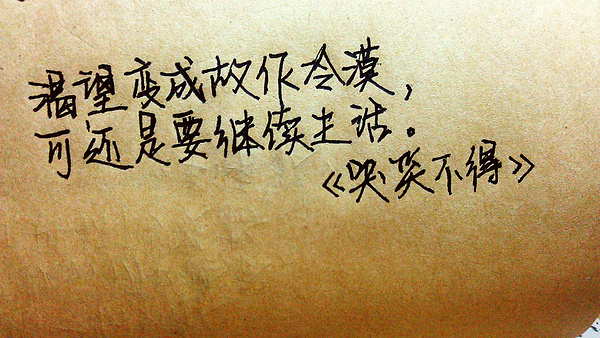 渴望变成故作冷漠，
可还是要继续生活。
《哭笑不得》